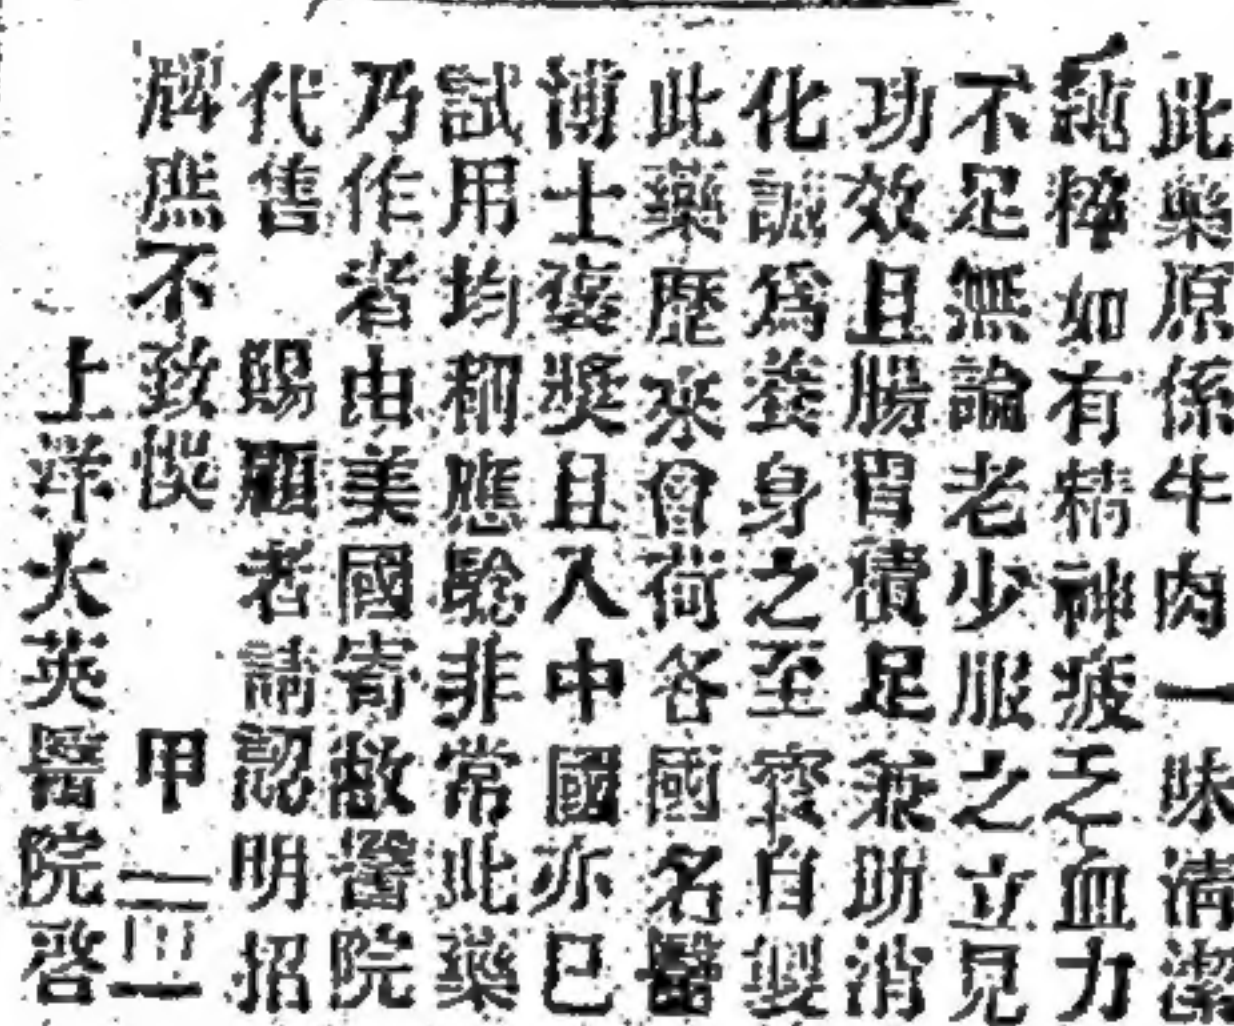 此藥原係牛肉一味清潔
純粹如有精神疲乏血力
不足無論老少服之立見
功效且腸胃積足兼助消
化誠爲養身之至寶自製
此藥歷來曾荷各國名醫
博士褒奬且入中國亦已
試用均稱應驗非常此藥
乃作者由美國寄敝醫院
代售 賜顧者請認明招
牌庶不致悞 甲
上洋大英醫院啓